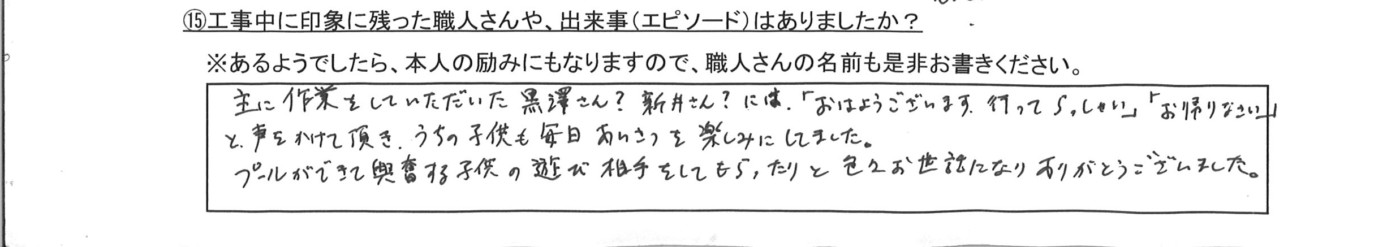 ⑮工事中に印象に残った職人さんや、出来事(エピソード)はありましたか？
※あるようでしたら、本人の励みにもなりますので、職人さんの名前も是非お書きください。
主に作業をしていただいた黒澤さん？新井さん？には、「おはようございます、行ってらっしゃい」「お帰りなさい」
と、声をかけて頂き、うちの子供も毎日あいさつを楽しみにしてました。
プールができて興奮する子供の遊び相手をしてもらったりと色々お世話になりありがとうございました。